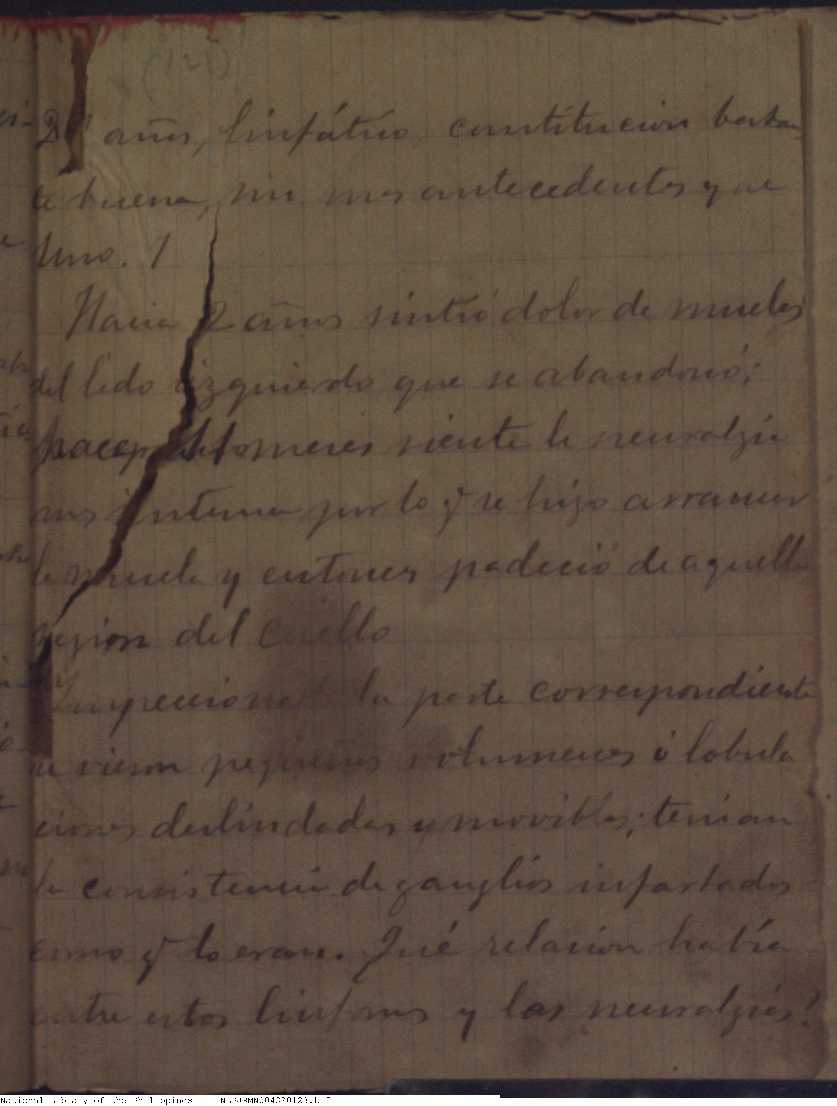 (121)
años, linfático constitución bastan
te buena, sin mas antecedentes que
uno. 1
Hacia 2 años sintió dolor de muelas
del lado izquierdo que se abandonó;
hace meses siente la neuralgia
mas intensa por lo q se hizo arrancar
la muela y entonces padeció de aquella
region del cuello
Inspeccionada la parte correspondiente
se vieron pequeños volumenes ó lobula
ciones deslindadas y movibles; tenian
la consistencia de ganglios infartados
como q lo eran. Qué relacion había
entre estos linfomas y las neuralgias?
National Library of the Philippines